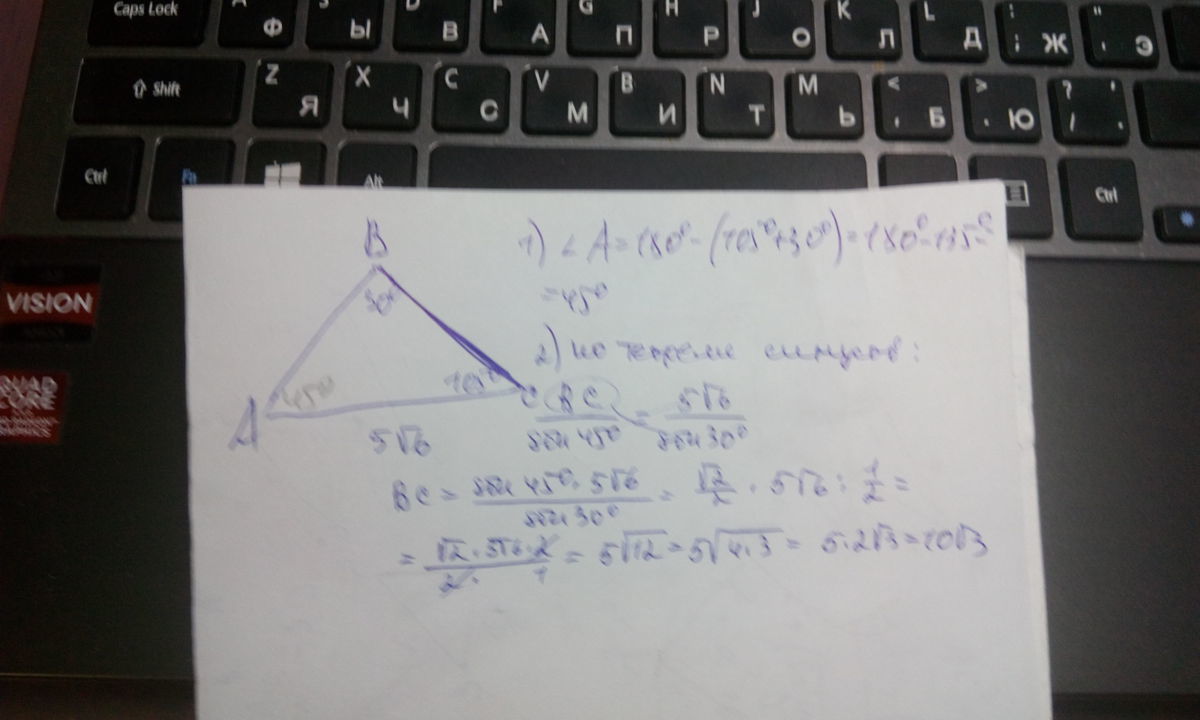 Caps Lock Ф Ы D В F А G П H Р J О K Л L Д : ; Ж " ' Э
⇧ Shift Z Я X Ч C С V М B И N Т M Ь < , Б > . Ю ? / .
Ctrl Fn Alt Ctrl
VISION
QUAD
CORE
B
30°
45°
105°
A
C
5√6
1) ∠A=180°-(105°+30°)=180°-135°=
=45°
2) по теореме синусов:
BC/sin45° = 5√6/sin30°
BC = sin45°·5√6/sin30° = √2/2 · 5√6 : 1/2 =
= √2·5√6·2/2·1 = 5√12 = 5√4·3 = 5·2√3=10√3